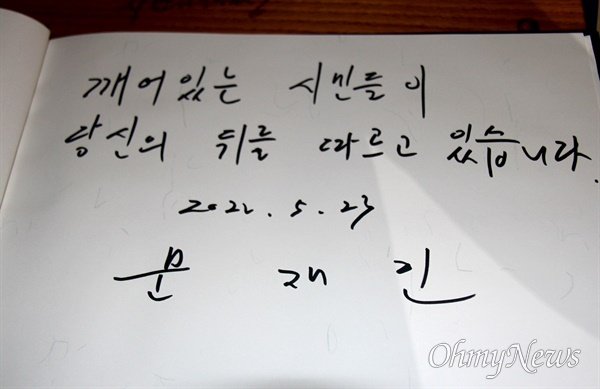 깨어있는 시민들이
당신의 뒤를 따르고 있습니다.
2022. 5. 23
문 재 인
OhmyNews